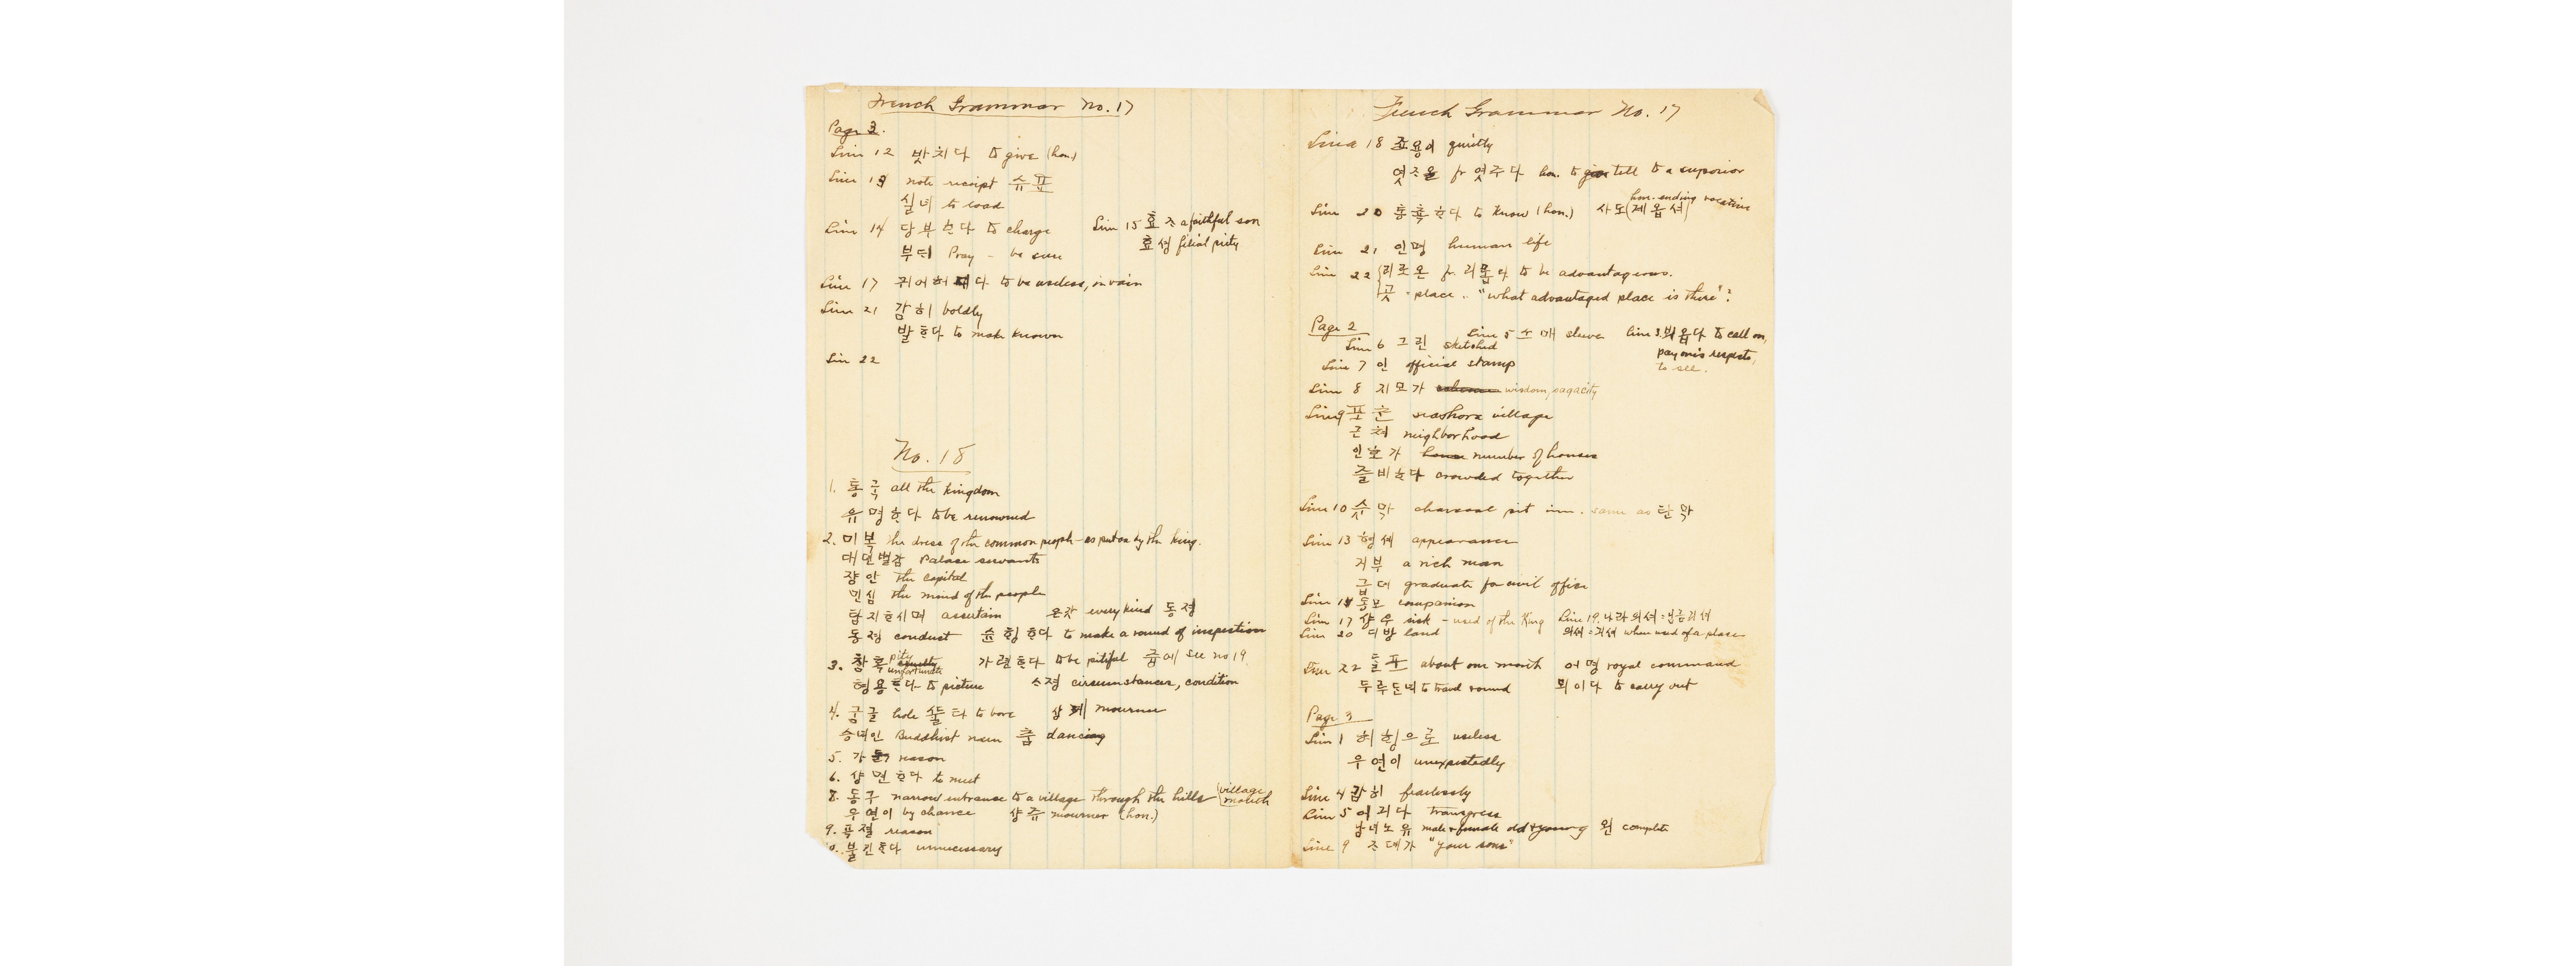 French Grammar No. 17
Page 3.
Line 12 밧치다 to give (hon.)
Line 13 note receipt 슈표
실녀 to load
Line 14 당부ᄒᆞᆫ다 to charge
부ᄃᆡ Pray - be sure
Line 15 효ᄌᆞ a faithful son
효셩 filial piety
Line 17 to be useless, in vain
Line 21 감히 boldly
발ᄒᆞᆫ다 to make known
Line 22
No. 18
1. 통국 all the kingdom
유명ᄒᆞ다 to be renowned
2. 미복 the dress of the common people - as put on by the king.
대뎐별감 Palace servants
쟝안 the capital
민심 the mind of the people
탐지ᄒᆞ시며 ascertain 온갓 every kind 동졍
동졍 conduct 슌ᄒᆡᆼᄒᆞ다 to make a round of inspection
3. 참혹 pity unfortunate 가련ᄒᆞ다 to be pitiful 즁에 see no 19.
형용ᄒᆞᆫ다 to picture ᄉᆞ졍 circumstances, condition
4. 굼글 hole to bore 상졔 mourner
승녀인 Buddhist nun 춤 dancing
5. reason
6. 샹면ᄒᆞ다 to meet
8. 동구 narrow entrance to a village through the hills (village mouth
우연이 by chance 샹쥬 mourner (hon.)
9. reason
불긴ᄒᆞ다 unnecessary
French Grammar No. 17
Line 18 죠용이 quietly
엿ᄌᆞ올 fr 엿주다 hon. to tell to a superior
Line 20 통촉ᄒᆞᆫ다 to know (hon.) 사도(제옵셔) hon. ending vocative
Line 21 인명 human life
Line 22 리로온 fr. 리롭다 to be advantageous.
곳 - place .. "what advantaged place is there"?
Page 2
Line 5 소매 sleeve
Line 3. 뵈옵다 to call on, pay one's respects, to see.
Line 6 그린 sketched
Line 7 인 official stamp
Line 8 지모가 wisdom, sagacity
Line 9 포촌 seashore village
근쳐 neighborhood
인호가 number of houses
즐비ᄒᆞ다 crowded together
Line 10 슛막 charcoal pit inn. same as 탄막
Line 13 형셰 appearance
거부 a rich man
급뎨 graduate for civil office
Line 14 동모 companion
Line 17 샹우 sick - used of the King
Line 19. 나라의셔 = 님금긔셔
Line 20 디방 land
의셔 = 긔셔 when used of a place
Line 22 달포 about one month 어명 royal command
두루ᄃᆞᆫ녀 to travel round 뫼이다 to carry out
Page 3
Line 1 허ᄒᆡᆼ으로 useless
우연이 unexpectedly
Line 4 감히 fearlessly
Line 5 어긔다 transgress
남녀노유 male & female old & young 왼 complete
Line 9 ᄌᆞ뎨가 "your sons"